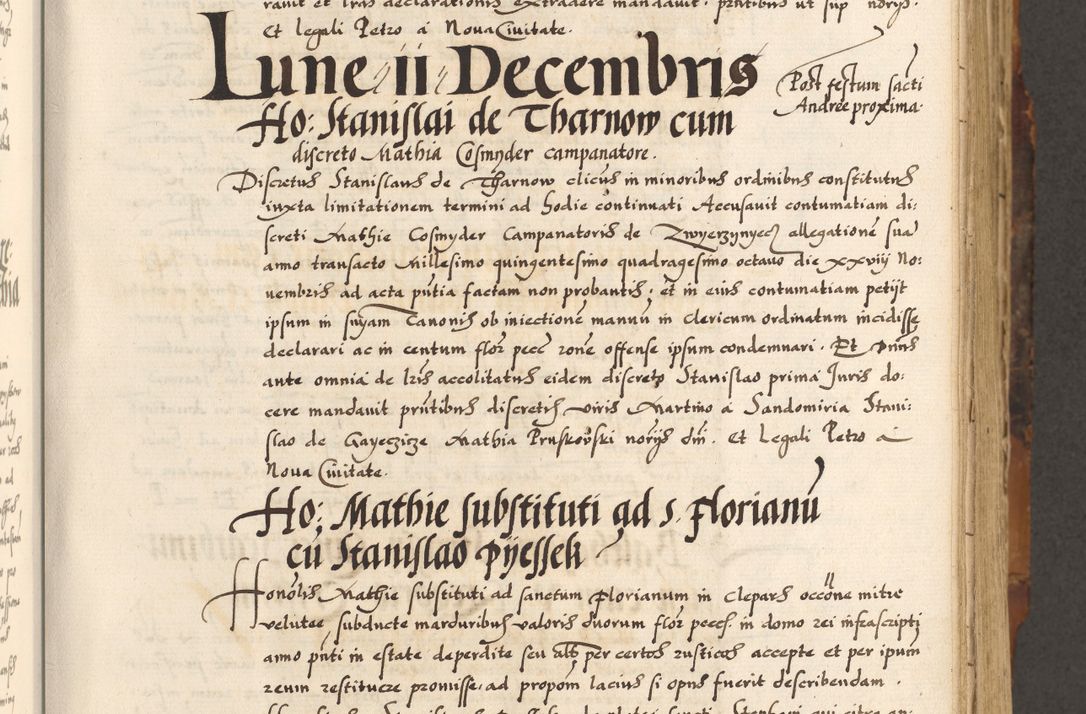 et legali Petro á Noua Ciuitate.
Lune ii Decembris
Post festum sacti
Andree proxima.
Ho: Stanislai de Tharnow cum
discreto Mathia Cosmyder campanatore.
Discretus Stanislaus de Tharnow clicus in minoribus ordinibus constitutus
iuxta limitationem termini ad hodie continuati Accusauit contumatiam di:
screti Mathie Cosmyder Campanatoris de Zwyerzynyecz allegationē sua
anno transacto Millesimo quingentesimo quadragesimo octauo die xxviij No:
uembris ad acta pntia factam non probantis: et in eius contumatiam petijt
ipsum in snyam Canonis ob iniectionē manuū in clericum ordinatum incidisse
declarari ac in centum flor pecc rone offense ipsum condemnari. Et Dnus
ante omnia de lris accolitatus eidem discreto Stanislao prima Juris do:
cere mandauit prntibus discretis viris Martino á Sandomiria Stani:
slao de Gayeczicze Mathia Pruskowski norijs dm̄. et Legali Petro á
Noua Ciuitate.
Ho: Mathie substituti ad S. Florianū
cū Stanislao Pyessek
Honolis Mathie substituti ad sanctum Florianum in Clepars occōne mitre
velutee subducte marduribus valoris duorum flor pecc. in domo rei infrascripti
anno pnti in estate deperdite seu per certos rusticos accepte et per ipum
reum restituere promisse, ad propom lacius si opus fuerit describendam.